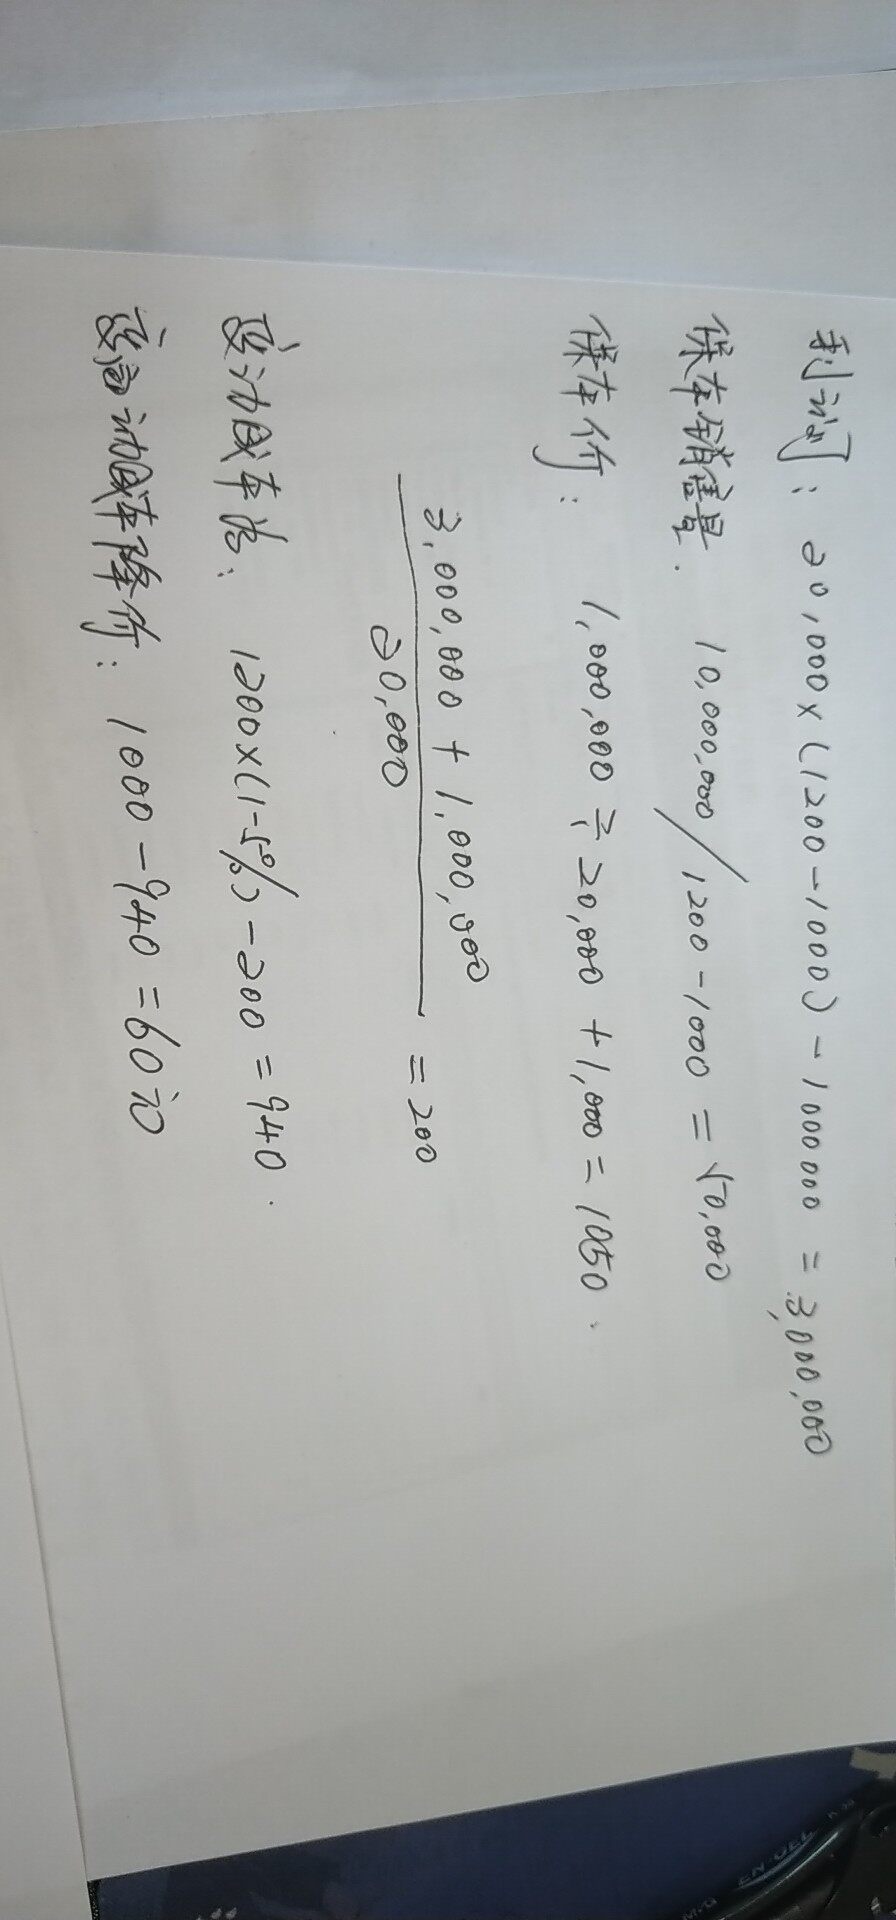 利润: 20,000×(1200-1000)-1000000 = 3,000,000
保本销售量. 10,000,000/1200-1000 = 50,000
保本价: 1,000,000 ÷ 20,000 +1,000 = 1050.
3,000,000 + 1,000,000
20,000
= 200
变动成本为: 1200×(1-5%)-200 = 940.
变动成本降价: 1000-940 = 60元
EN